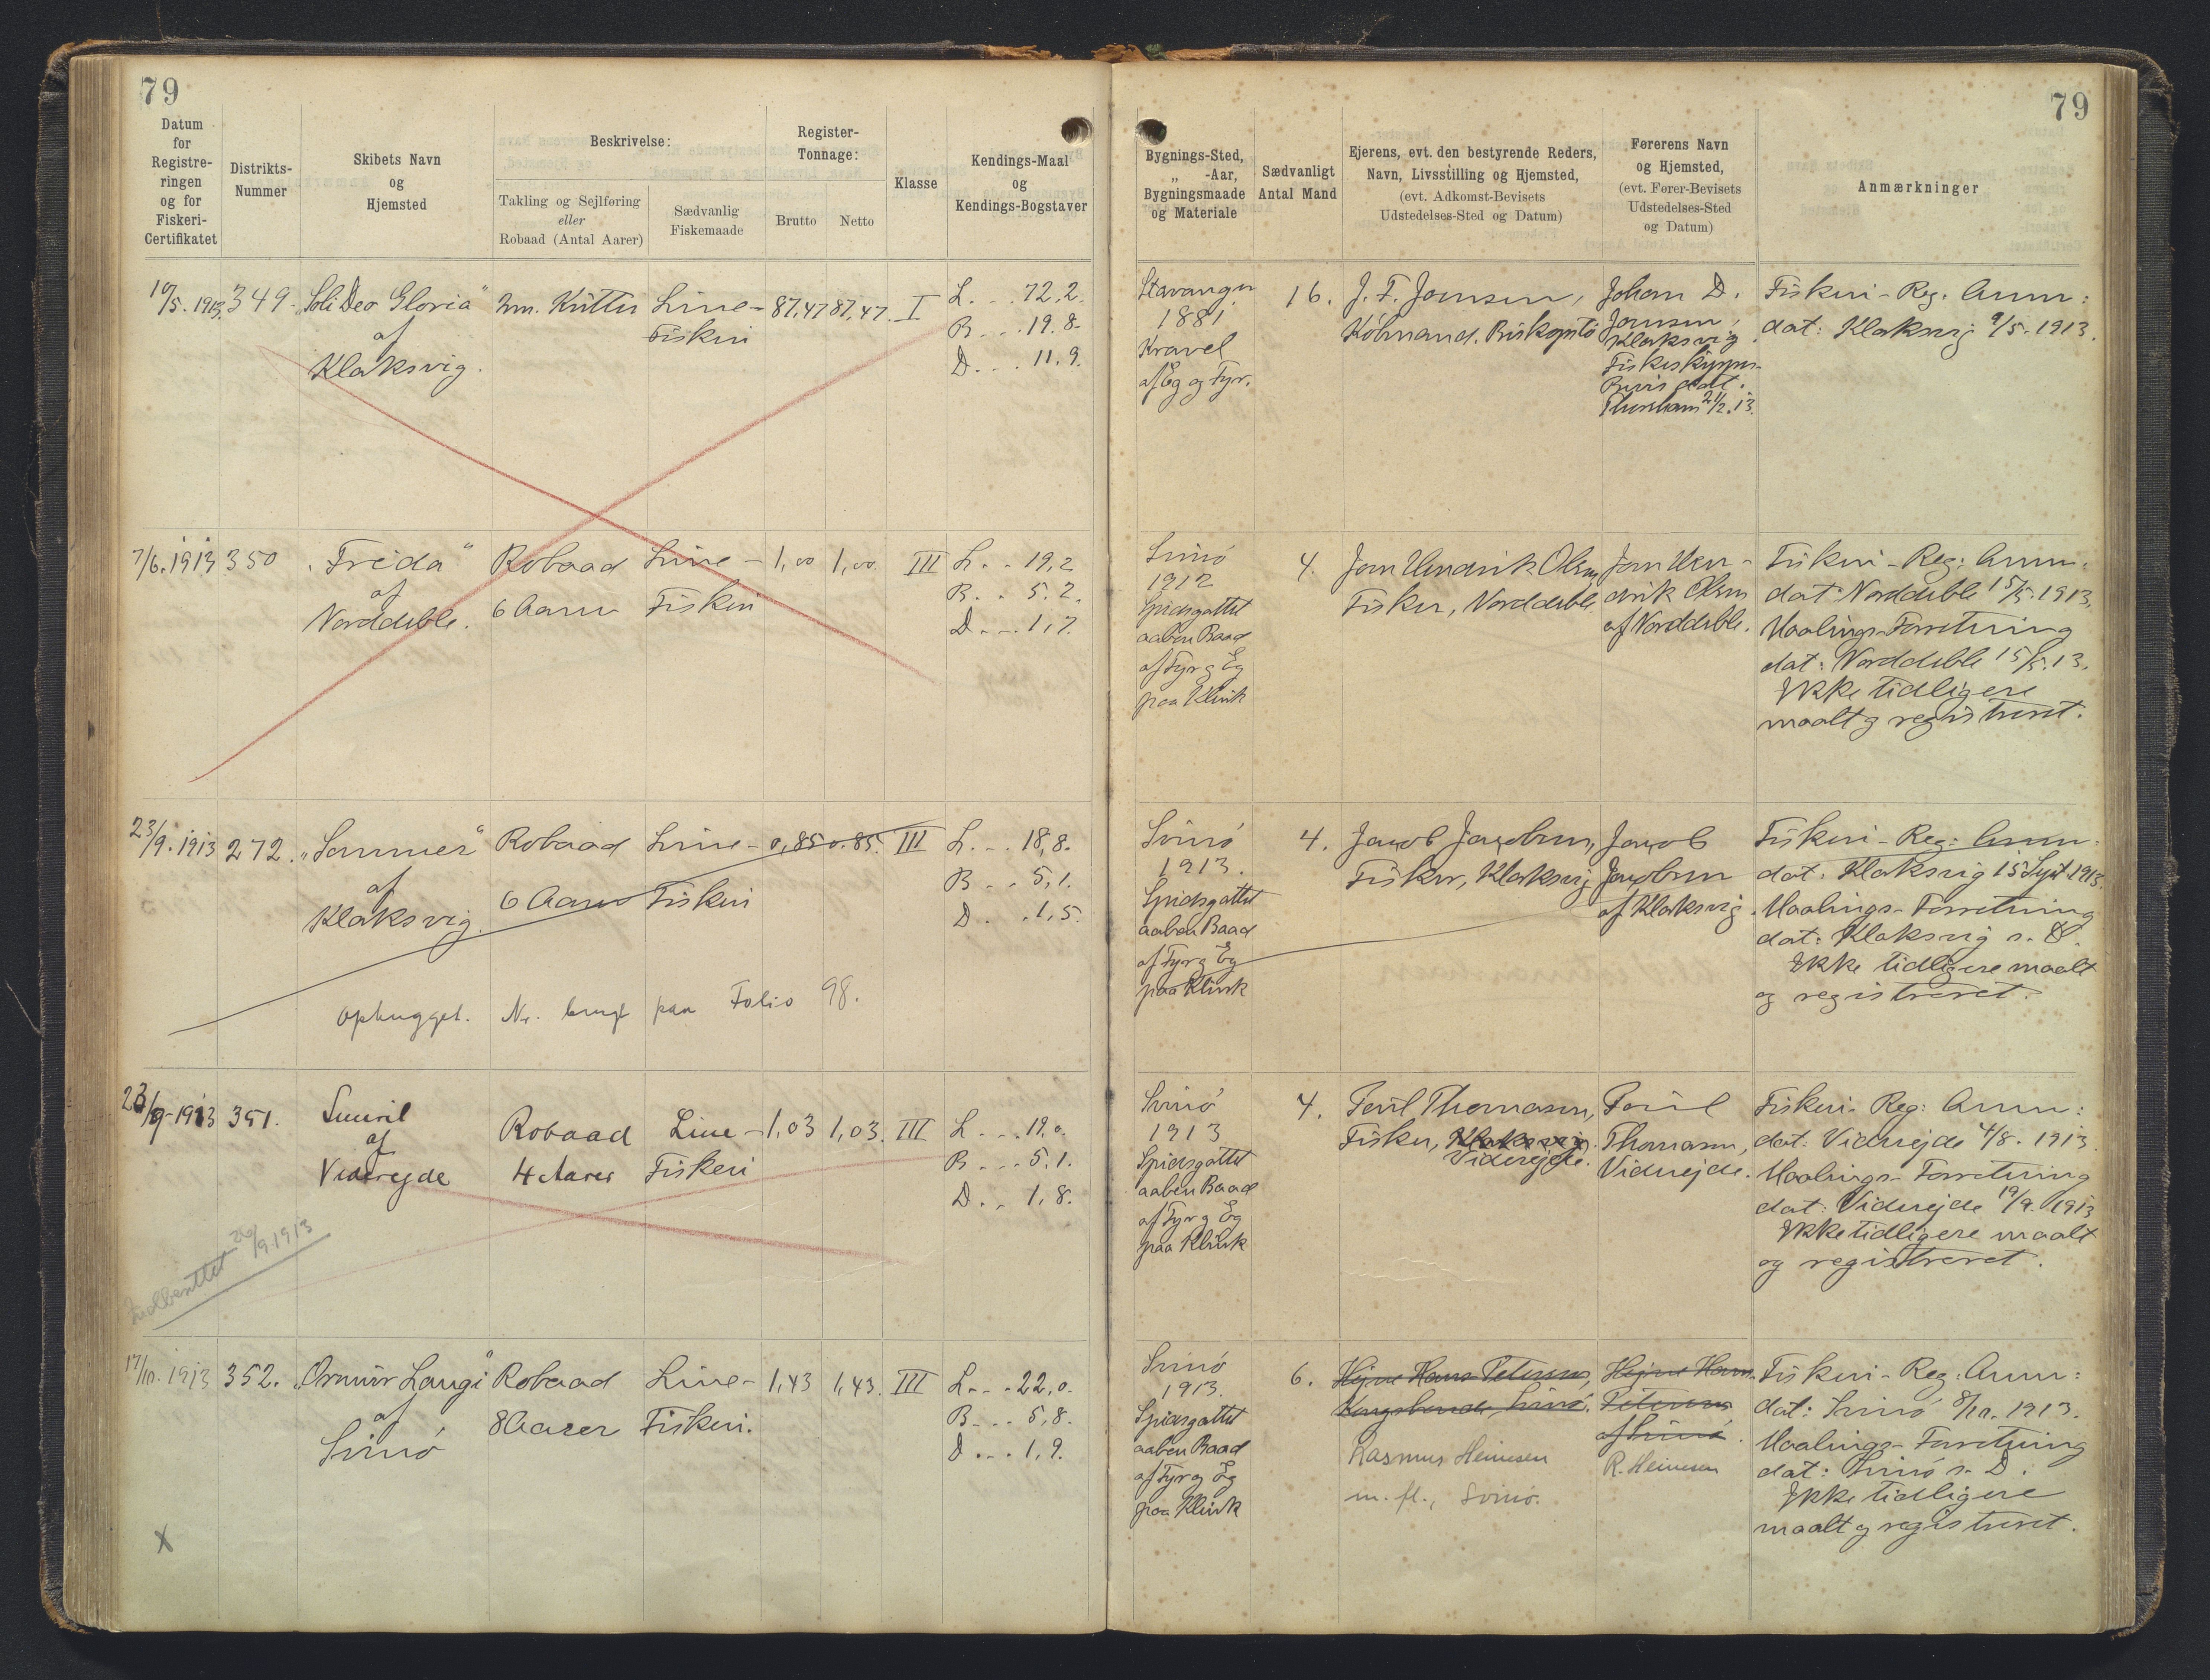 79
79
Datum
for
Registre-
ringen
og for
Fiskeri-
Certifikatet
Distrikts-
Nummer
Skibets Navn
og
Hjemsted
Beskrivelse:
Takling og Sejlføring
eller
Robaad (Antal Aarer)
Sædvanlig
Fiskemaade
Register-
Tonnage:
Brutto
Netto
Klasse
Kendings-Maal
og
Kendings-Bogstaver
Bygnings-Sted,
„ -Aar,
Bygningsmaade
og Materiale
Sædvanligt
Antal Mand
Ejerens, evt. den bestyrende Reders,
Navn, Livsstilling og Hjemsted,
(evt. Adkomst-Bevisets
Udstedelses-Sted og Datum)
Førerens Navn
og Hjemsted,
(evt. Fører-Bevisets
Udstedelses-Sted
og Datum)
Anmærkninger
10/5. 1913.
349.
„Soli Deo Gloria"
af
Klaksvig.
2m. Kutter
Line-
Fiskeri
87,47
87,47.
I
L. . . 72,2.
B. . . 19.8.
D. . . 11.9.
Stavanger
1881
Kravel
af Eg og Fyr.
16.
J. F. Joensen,
Købmand.
Johan D.
Joensen,
Klaksvig.
Fiskeskipper-
Bevis dat.
Thorshavn 21/2.13.
Fiskeri-Reg. Anm:
dat: Klaksvig 9/5.1913.
7/6.1913
350
„Frida"
af
Norddeble.
Robaad
6 Aarer
Line-
Fiskeri
1,00
1,00.
III
L. . . 19,2
B. . 5.2.
D. . . 1,7.
Svinö
1912
Spidsgattet
aaben Baad
af Fyr og Eg
paa Klink
4.
Joen Hendrik Olsen
Fisker, Norddeble.
Joen Hen-
drik Olsen
af Norddeble.
Fiskeri-Reg: Anm:
dat: Norddeble 15/5.1913,
Maalings-Forretning
dat: Norddeble 15/5.13.
Ikke tidligere
maalt og registreret.
23/9.1913
272.
„Sanmer"
af
Klaksvig.
Robaad
6 Aarer
Line-
Fiskeri
0,85
0.85.
III
L. . . 18,8.
B. . . 5,1.
D. . . 1,5.
ophugget. Nr. brugt paa Folio 98.
Svinö
1913.
Spidsgattet
aaben Baad
af Fyr og Eg
paa Klink
4.
Jacob Jacobsen,
Fisker, Klaksvig
Jacob
Jacobsen
af Klaksvig.
Fiskeri-Reg: Anm:
dat. Klaksvig 15 Sept. 1913.
Maalings-Forretning
dat: Klaksvig s. D.
Ikke tidligere maalt
og registreret.
23/9-1913
351.
Smiril
af
Viderejde
Robaad
4 Aarer
Line-
Fiskeri
1,03
1,03.
III
L. . . 19,0.
B. . . 5.1.
D. . 1,8.
26/9.1913
Svinö
1913
Spidsgattet
aaben Baad
af Fyr og Eg
paa Klink
4.
Poul Thomasen,
Fisker, Klaksvig.
Viderejde.
Poul
Thomasen,
Viderejde.
Fiskeri-Reg: Anm:
dat: Viderejde 4/8. 1913.
Maalings-Forretning
dat: Viderejde 19/9. 1913
Ikke tidligere maalt
og registreret.
17/10.1913
352.
„Ormur Langi"
af
Svinö
Robaad
8 Aarer
Line-
Fiskeri.
1,43
1,43.
III
L. . . 22,0.
B. . . 5,8.
D. . . 1,9.
X
Svinö
1913.
Spidsgattet
aaben Baad
af Fyr og Eg
paa Klink
6.
Hejne Hans Petersen,
Kongsbonde, Svinö.
Rasmus Heinesen
m. fl., Svinö.
Hejne Hans
Petersen
af Svinö.
R. Heinesen
Fiskeri-Reg: Anm:
dat: Svinö 8/10. 1913.
Maalings-Forretning
dat: Svinö s. D.
Ikke tidligere
maalt og registreret.